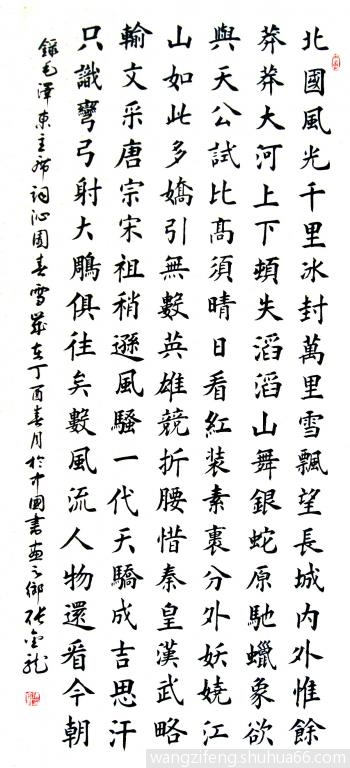 北國風光千里冰封萬里雪飄望長城內外惟餘
莽莽大河上下頓失滔滔山舞銀蛇原馳蠟象欲
與天公試比髙須晴日看紅裝素裹分外妖嬈江
山如此多嬌引無數英雄競折腰惜秦皇漢武略
輸文采唐宗宋祖稍遜風騷一代天驕成吉思汗
只識彎弓射大鵰俱往矣數風流人物還看今朝
錄毛澤東主席詞沁園春雪歲在丁酉春月於中國書畫之鄉張金龍
wangzifeng.shuhua66.com